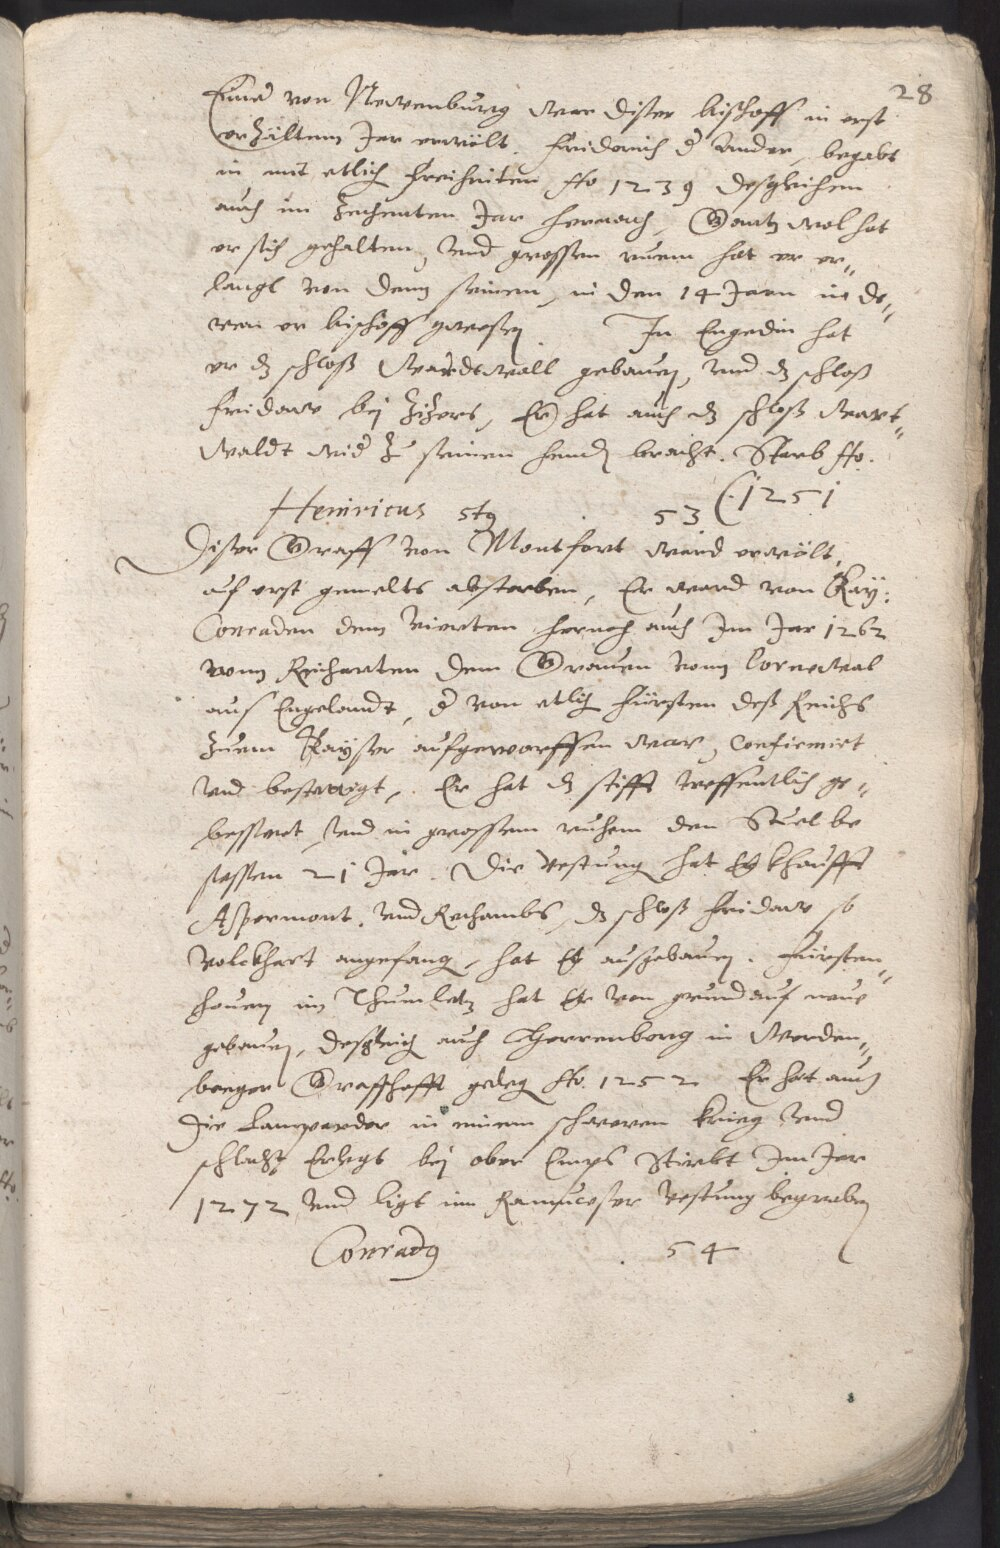 28
Einer von Newenburg war diser bischoff in erst
erzältem Jar erwölt. Friderich d' ander, begabt
in mit etlich freiheiten Ao 1239 desgleichen
auch im zechenten Jar hernach, Gantz wol hat
er sich gehalten, vnd grossen ruem hat er er„
langt von denn seinen, in den 14 Jarn in de„
nen er bischoff gwesen. In Engedin hat
er dz schloß Wardtwall gebauen, vnd dz schloß
Fridaw bej Zizers, Er hat auch dz schloß Wart„
waldt wid' zu seinen hend bracht. Starb Ao.
(1251
Heinricus 5t9 53
Diser Graff von Montfort ward erwölt,
auf erst gemelts absterben, Er ward von Kay:
Conraden dem vierten hernoch auch Im Jar 1262
vom Reicharten dem Grauen vonn Cornewal
aus Engelandt, d' von etlich fürsten deß Reichs
zuem Kayser aufgeworffen war, Confirmiert
vnd bestettigt, Er hat dz stifft treffentlich ge„
bessert, vnd in grossem ruhem den Stuel be
sessen 21 Jar. Die vestung hat Er khaufft
Aspermont. vnd Rechambs, dz schloß Fridaw so
Volckhart angefang, hat Er ausgebauen. Fürsten„
houen im Thumletz hat Er von grund auf neuw
gebauen, desgleich auch Herrenberg in Werden„
berger Graffschafft geleg Ao. 1252 Er hat auch
die Lamparder in einem schweren krieg vnd
schlacht Erlegt bej ober Emps Stirbt Im Jar
1272 vnd ligt im vestung begraben
Conrad9 54